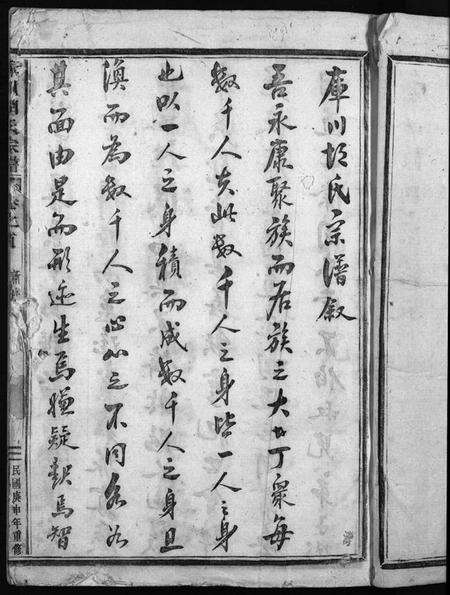 庫川胡氏宗譜叙
吾永康聚族而居族之大女丁衆每
數千人夫此數千人之身皆一人之身
也以一人之身積而成數千人之身且
渙而為數千人之心心之不同各如
其面由是而形迹生焉嫌疑起焉智
宗譜 卷之首
民國庚申年重修